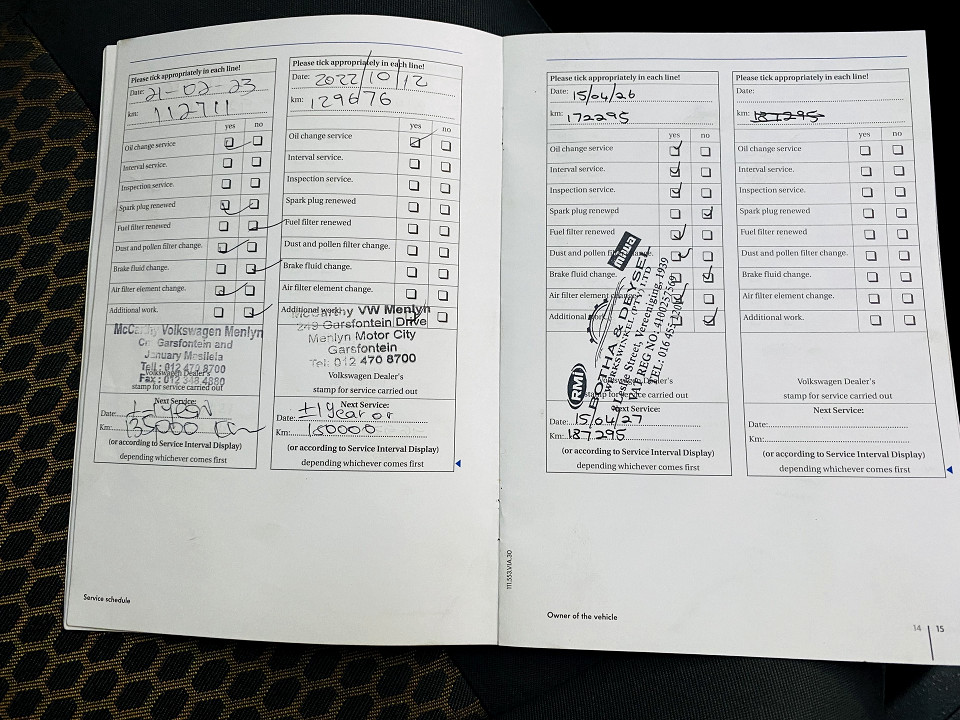 Please tick appropriately in each line!
Date: 21-02-23
km: 112711
yes no
Oil change service
Interval service.
Inspection service.
Spark plug renewed
Fuel filter renewed
Dust and pollen filter change.
Brake fluid change.
Air filter element change.
Additional work.
McCarthy Volkswagen Menlyn
Cnr Garsfontein and
January Masilela
Tel: 012 470 8700
Fax: 012 348 4880
Volkswagen Dealer's
stamp for service carried out
Next Service:
Date: ±1 year
Km: 135000 km
(or according to Service Interval Display)
depending whichever comes first
Please tick appropriately in each line!
Date: 2022/10/12
km: 129676
yes no
Oil change service
Interval service.
Inspection service.
Spark plug renewed
Fuel filter renewed
Dust and pollen filter change.
Brake fluid change.
Air filter element change.
Additional work.
McCarthy VW Menlyn
249 Garsfontein Drive
Menlyn Motor City
Garsfontein
Tel: 012 470 8700
Volkswagen Dealer's
stamp for service carried out
Next Service:
Date: ±1 year or
Km: 150000
(or according to Service Interval Display)
depending whichever comes first
Service schedule
111.553.VIA.30
Please tick appropriately in each line!
Date: 15/04/26
km: 172295
yes no
Oil change service
Interval service.
Inspection service.
Spark plug renewed
Fuel filter renewed
Dust and pollen filter change.
Brake fluid change.
Air filter element change.
Additional work.
RMI
miwa
BOTHA & DEYSEL
WERKSWINKEL (PTY) LTD
Street, Vereeniging, 1939
VAT REG NO: 4100257569
TEL: 016 455 1200
Volkswagen Dealer's
stamp for service carried out
Next Service:
Date: 15/04/27
Km: 187295
(or according to Service Interval Display)
depending whichever comes first
Please tick appropriately in each line!
Date:
km: 187295
yes no
Oil change service
Interval service.
Inspection service.
Spark plug renewed
Fuel filter renewed
Dust and pollen filter change.
Brake fluid change.
Air filter element change.
Additional work.
Volkswagen Dealer's
stamp for service carried out
Next Service:
Date:
Km:
(or according to Service Interval Display)
depending whichever comes first
Owner of the vehicle
14 | 15